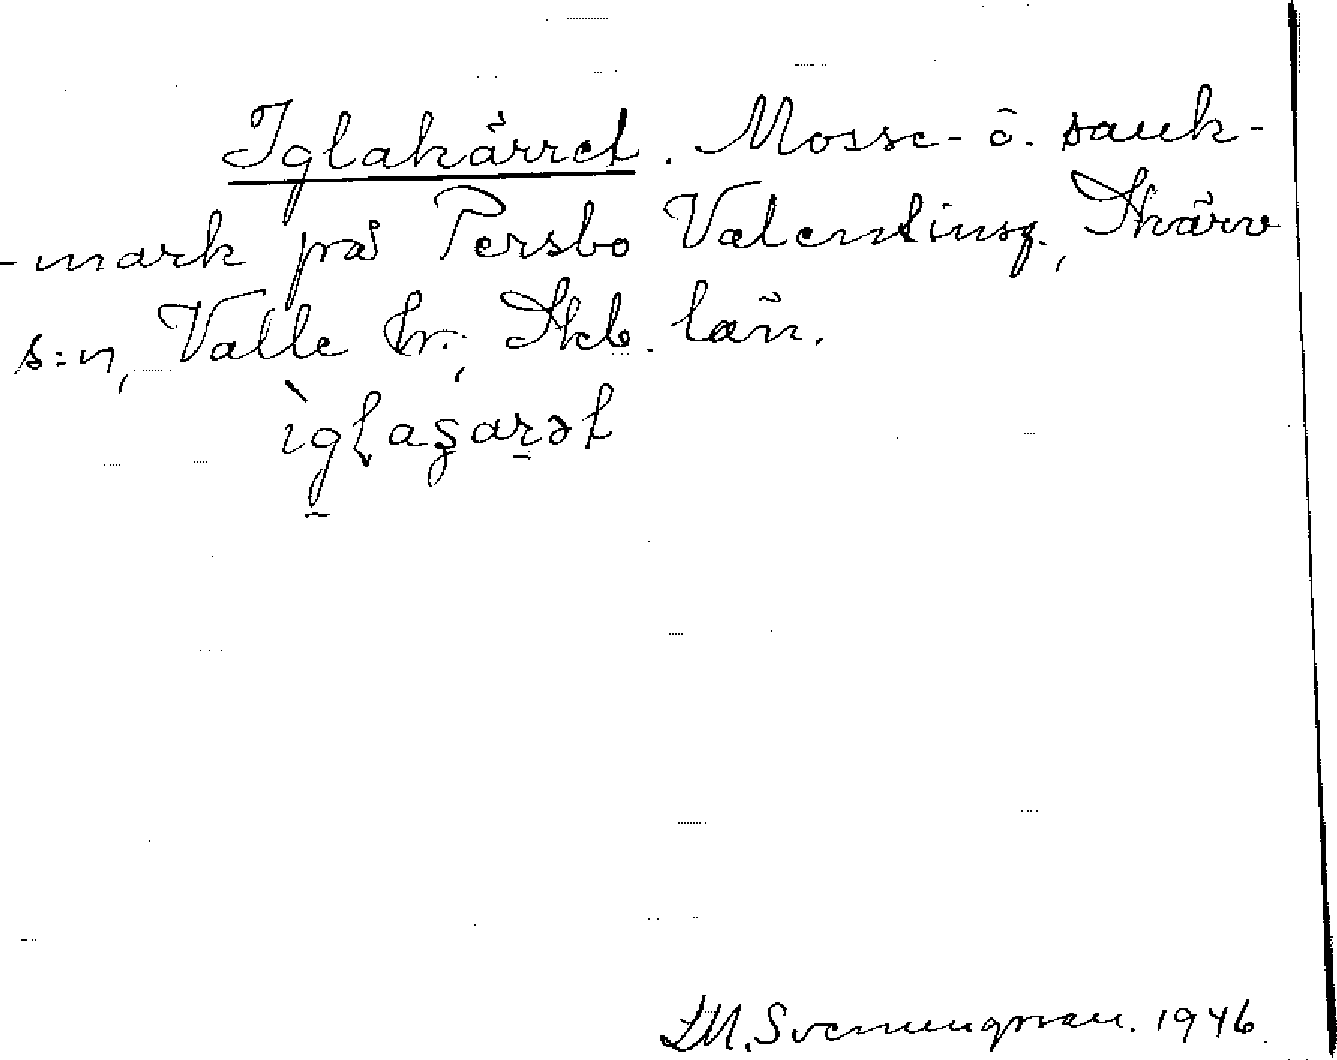 Iglakärret. Mosse- o. sank-
-mark på Persbo Valentinsg., Skärv
s:n, Valle hr., Skb. län.
ìgɽaʂarət
LM. Svenungsson. 1946.